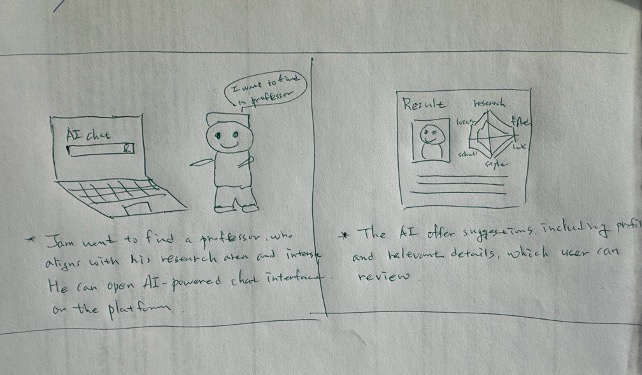 AI chat
I want to find
a professor
* Jam want to find a professor, who
aligns with his research area and
He can open AI-powered chat interface
on the platform.
Result
research
style
* The AI offer suggestions, including
and relevant details, which user can
review.